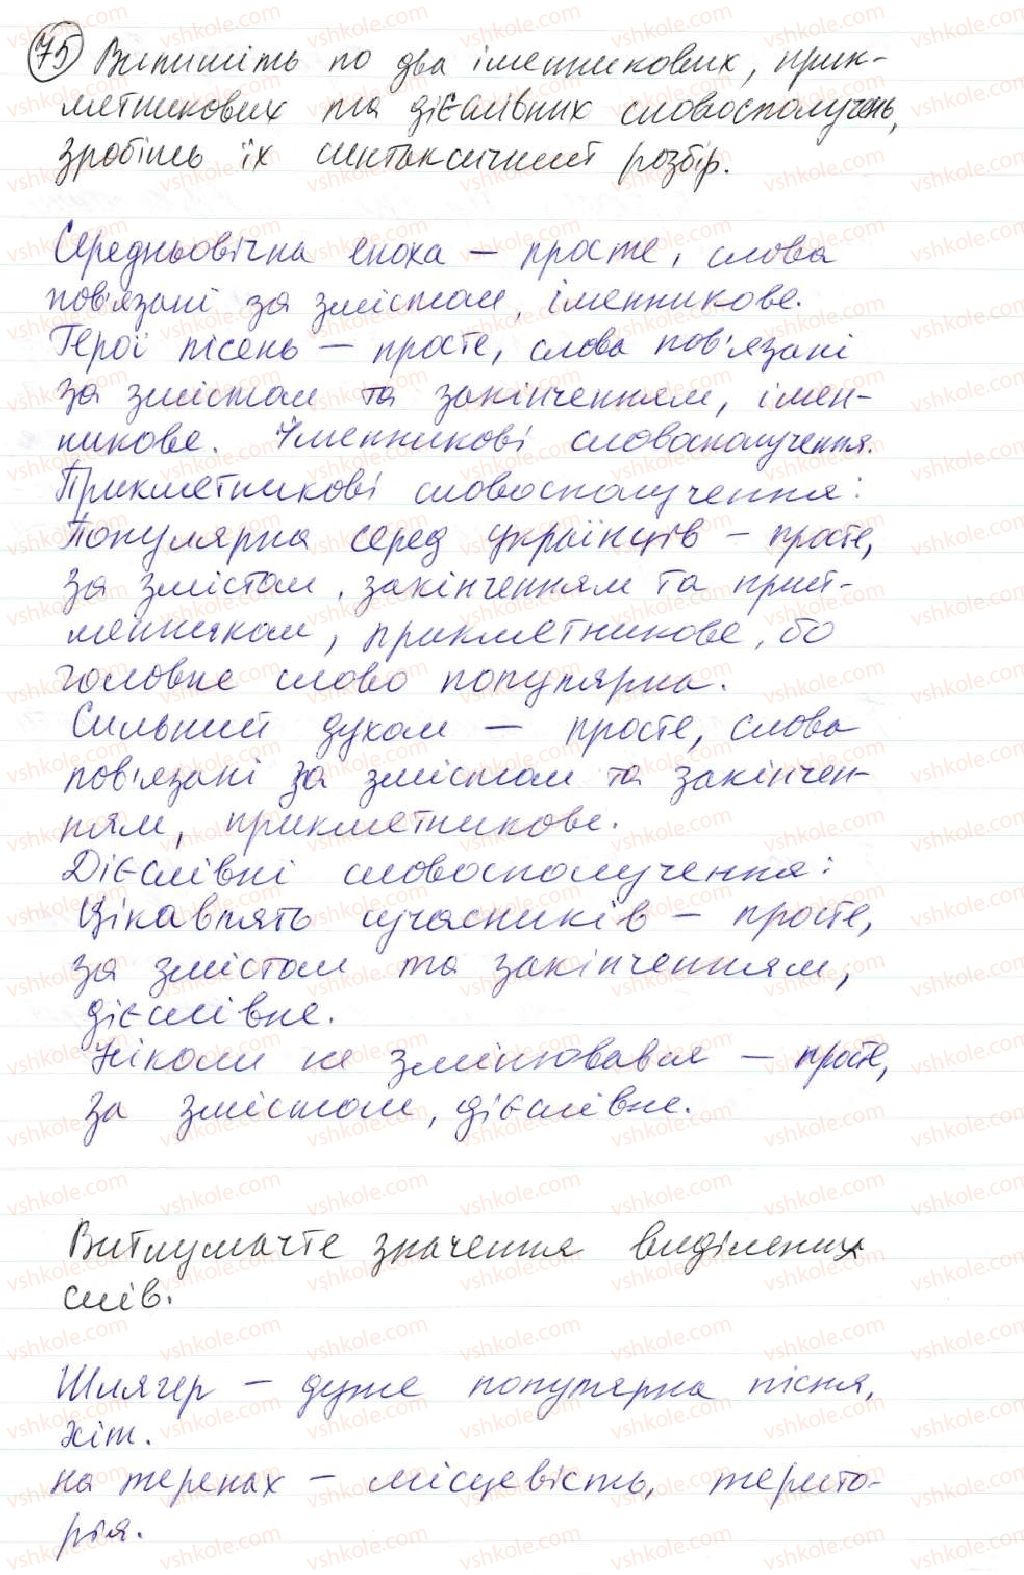 75 Випишіть по два іменникових, прик-
метникових та дієслівних словосполучень,
зробіть їх синтаксичний розбір.
Середньовічна епоха – просте, слова
пов'язані за змістом, іменникове.
Герої пісень – просте, слова пов'язані
за змістом та закінченням, імен-
никове. Іменникові словосполучення.
Прикметникові словосполучення:
Популярна серед українців – просте,
за змістом, закінченням та прий-
менником, прикметникове, бо
головне слово популярна.
Сильний духом – просте, слова
пов'язані за змістом та закінчен-
ням, прикметникове.
Дієслівні словосполучення:
Цікавлять сучасників – просте,
за змістом та закінченням,
дієслівне.
Ніколи не змінювався – просте,
за змістом, дієслівне.
Витлумачте значення виділених
слів.
Шлягер – дуже популярна пісня,
хіт.
на теренах – місцевість, терито-
рія.
vshkole.com